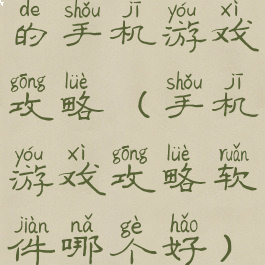 de shǒu jī yóu xì
的手机游戏
gōng lüè shǒu jī
攻略(手机
yóu xì gōng lüè ruǎn
游戏攻略软
jiàn nǎ gè hǎo
件哪个好)